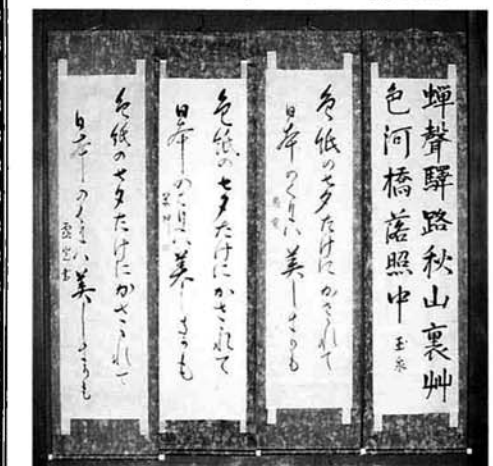 蟬聲驛路秋山裏艸
色河橋落照中 玉泉
色紙の七夕たけにかざられて
日本のくにハ美しきかも
色紙の七夕たけにかざられて
日本のくにハ美しきかも
色紙の七夕たけにかざられて
日本のくにハ美しきかも